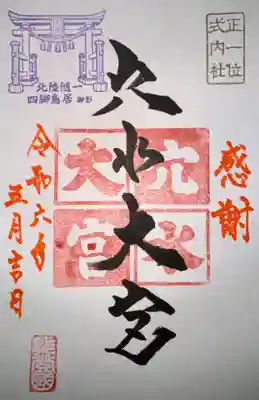 正一位
式内社
感謝
穴水大宮
穴水
大宮
北陸随一
四脚鳥居
令和六年
五月吉日